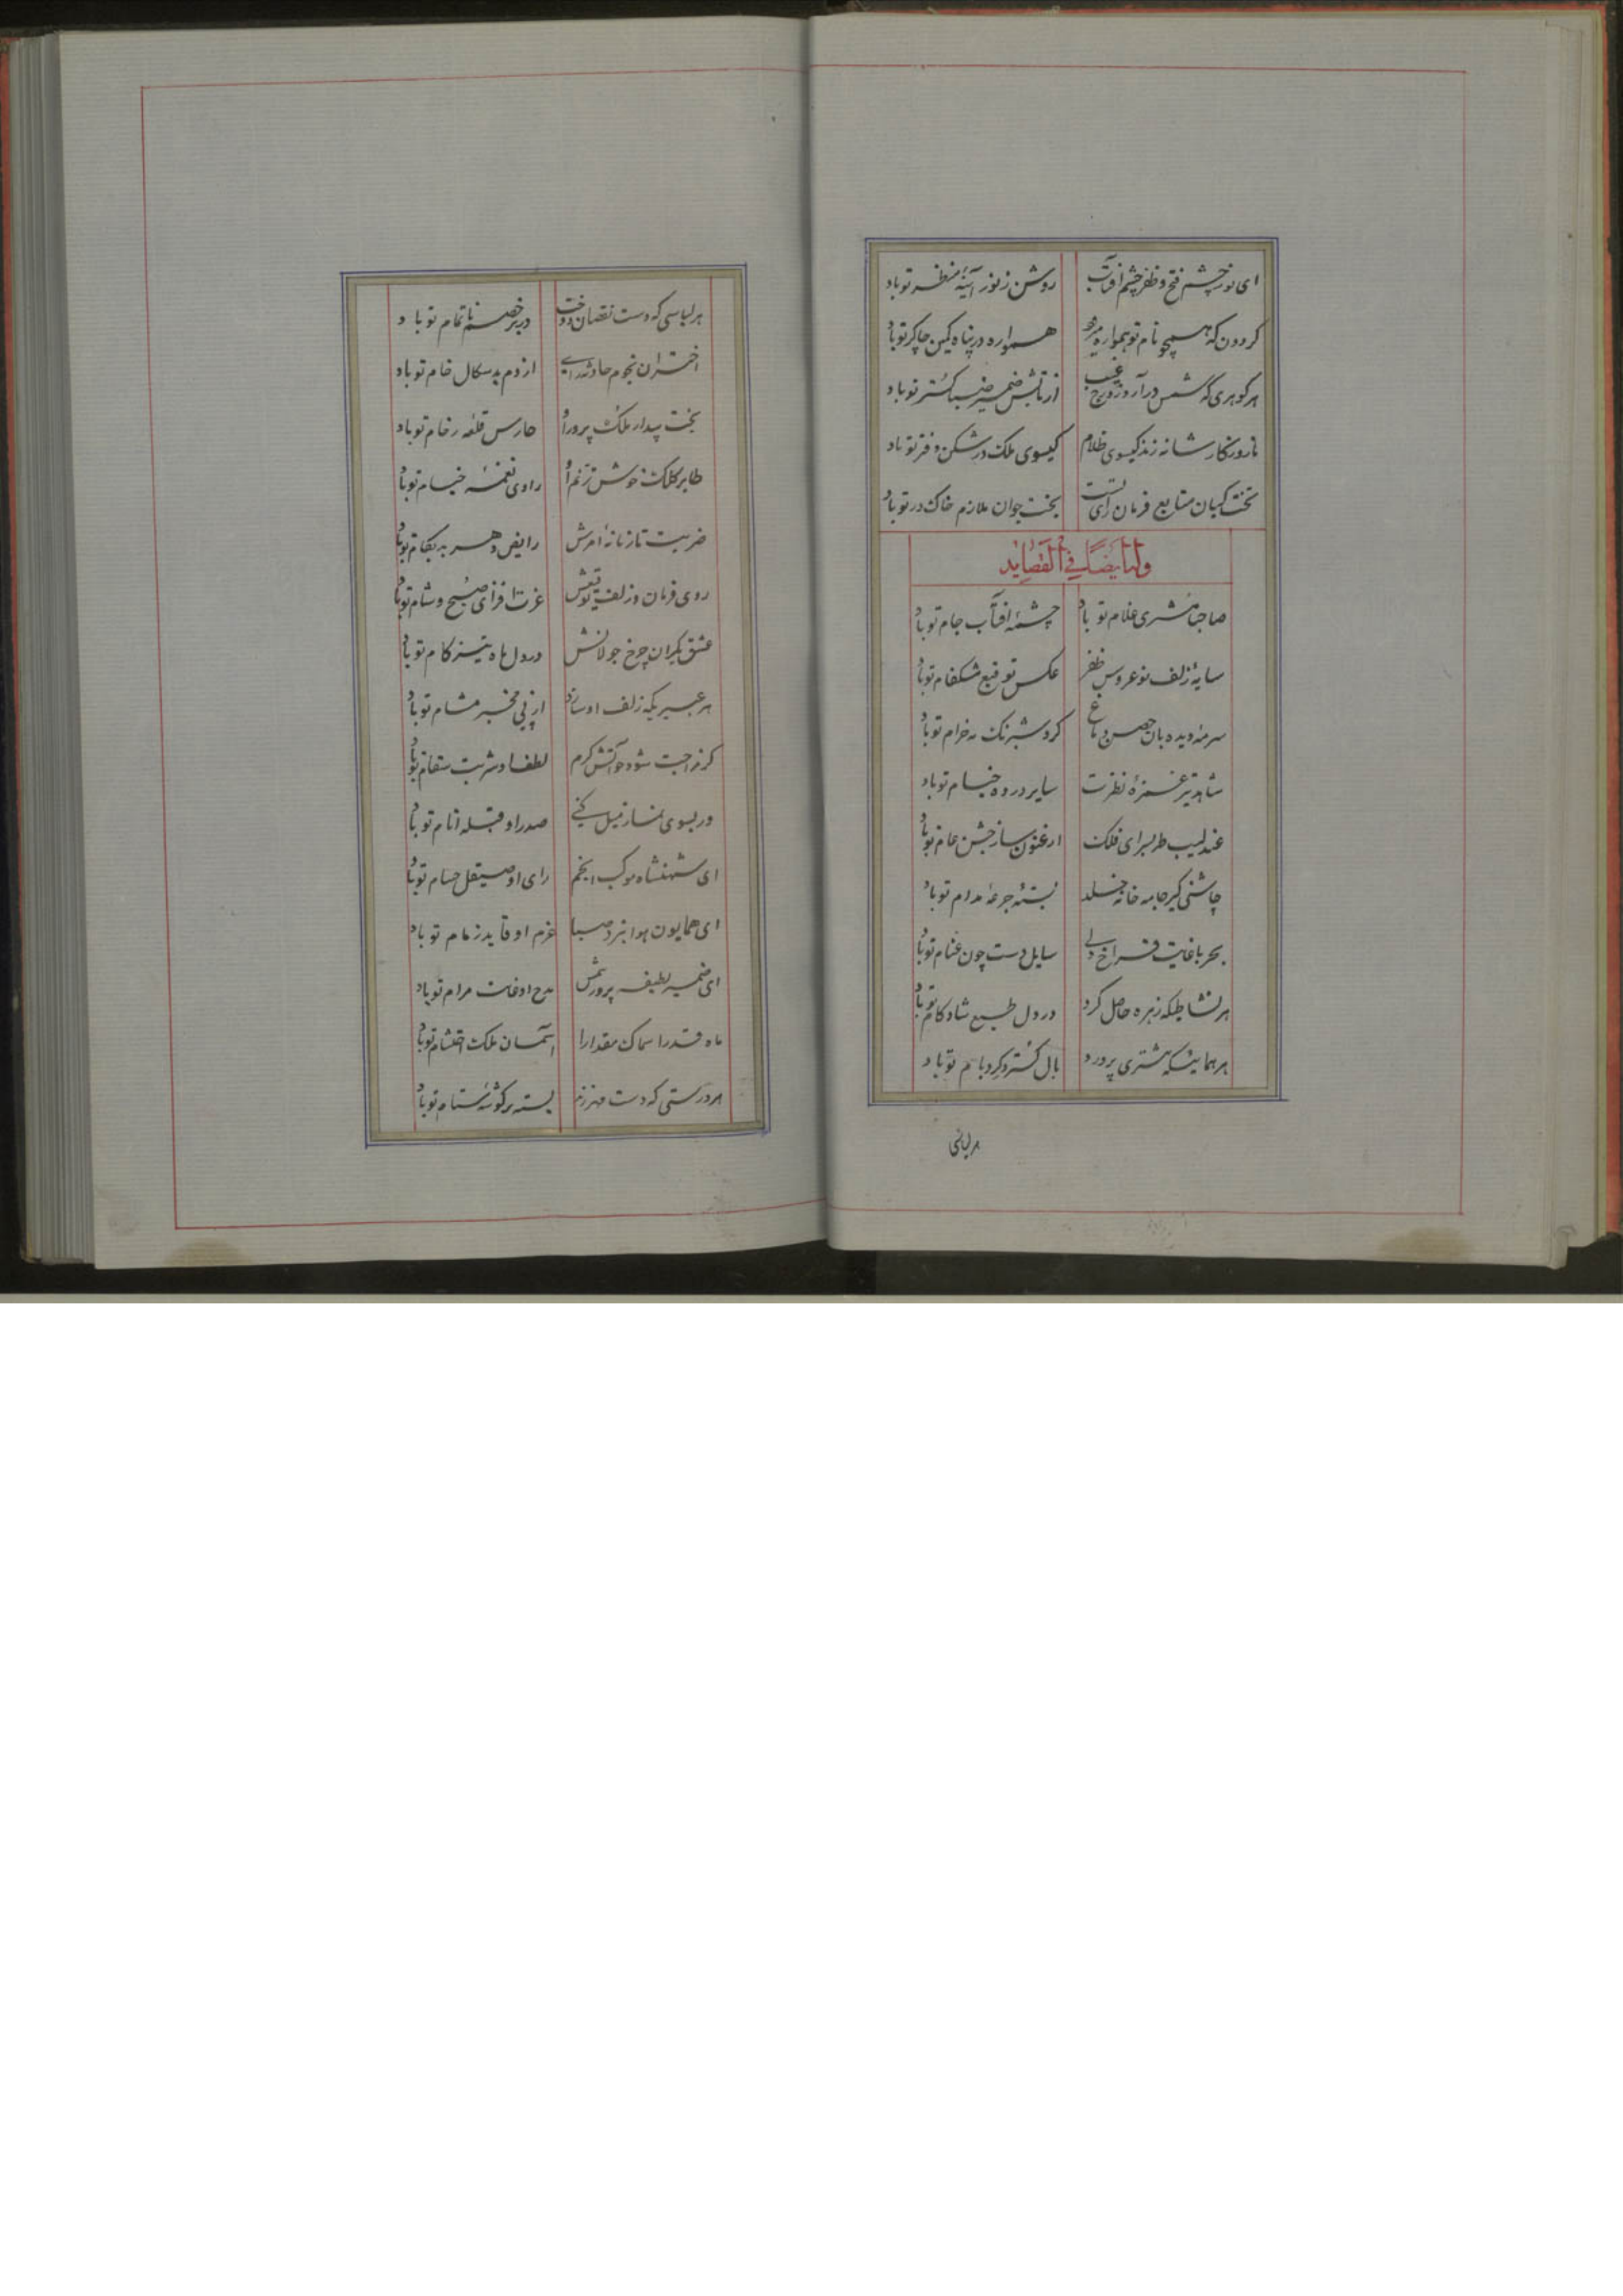 ای نور چشم فتح و ظفر چشم آفتاب روشن ز نور آینهٔ منظر تو باد
گردون که همچو نام تو همواره همواره در پناه کمین چاکر تو باد
هر گوهری که شمس درآرد ز درج غیب از تابش ضمیر ضیا گستر تو باد
تا روزگار شانه زند گیسوی ظلام گیسوی ملک در شکن دفتر تو باد
تخت کیان متابع فرمان رای تست بخت جوان ملازم خاک در تو باد
وله ایضاً فی القصاید
صاحبا مشتری غلام تو باد چشمهٔ آفتاب جام تو باد
سایهٔ زلف نوعروس ظفر عکس توقیع مشکفام تو باد
سرمه دیده بان حصن دماغ گرد شبرنگ مه خرام تو باد
شاهد تیر غمزهٔ نظرت سایر درده خیام تو باد
عندلیب طربسرای فلک ارغنون ساز جشن عام تو باد
چاشنی گیر جامه خانه خلد تشنه جرعهٔ مدام تو باد
بحر با غایت فراخ دلی سایل دست چون غمام تو باد
هر نشاطیکه زهره حاصل کرد در دل طبع شادکام تو باد
هر همائیکه مشتری پرورد بال گستر گرد بام تو باد
هر لباسی
هر لباسی که دست نقصان دوخت در بر خصم ناتمام تو باد
اختران نجوم حادثه رای از دم بدسگال خام تو باد
بخت بیدار ملک پرور او حارس قلعه رخام تو باد
طایر کلک خوش ترنم او راوی نغمهٔ خیام تو باد
ضربت تازیانهٔ امرش رایض دهر بدلگام تو باد
روی فرمان و زلف توقیعش عزت افزای صبح و شام تو باد
عشق یکران چرخ جولانش در دل ماه تیزگام تو باد
هر عبیریکه زلف او ساید از پی مخبر مشام تو باد
گر مزاجت شود خوش کرم لطف او شربت سقام تو باد
ور بسوی نماز میل کنی صدر او قبله انام تو باد
ای شهنشاه موکب انجم رای او صیقل حسام تو باد
ای همایون هوا نبرد صبا عزم او قاید زمام تو باد
ای ضمیر لطیف پرورش مدح او غایت مرام تو باد
ماه قدرا سماک مقدارا آسمان ملک احتشام تو باد
هر درستی که دست مهر زند بسته بر گوشهٔ ستام تو باد